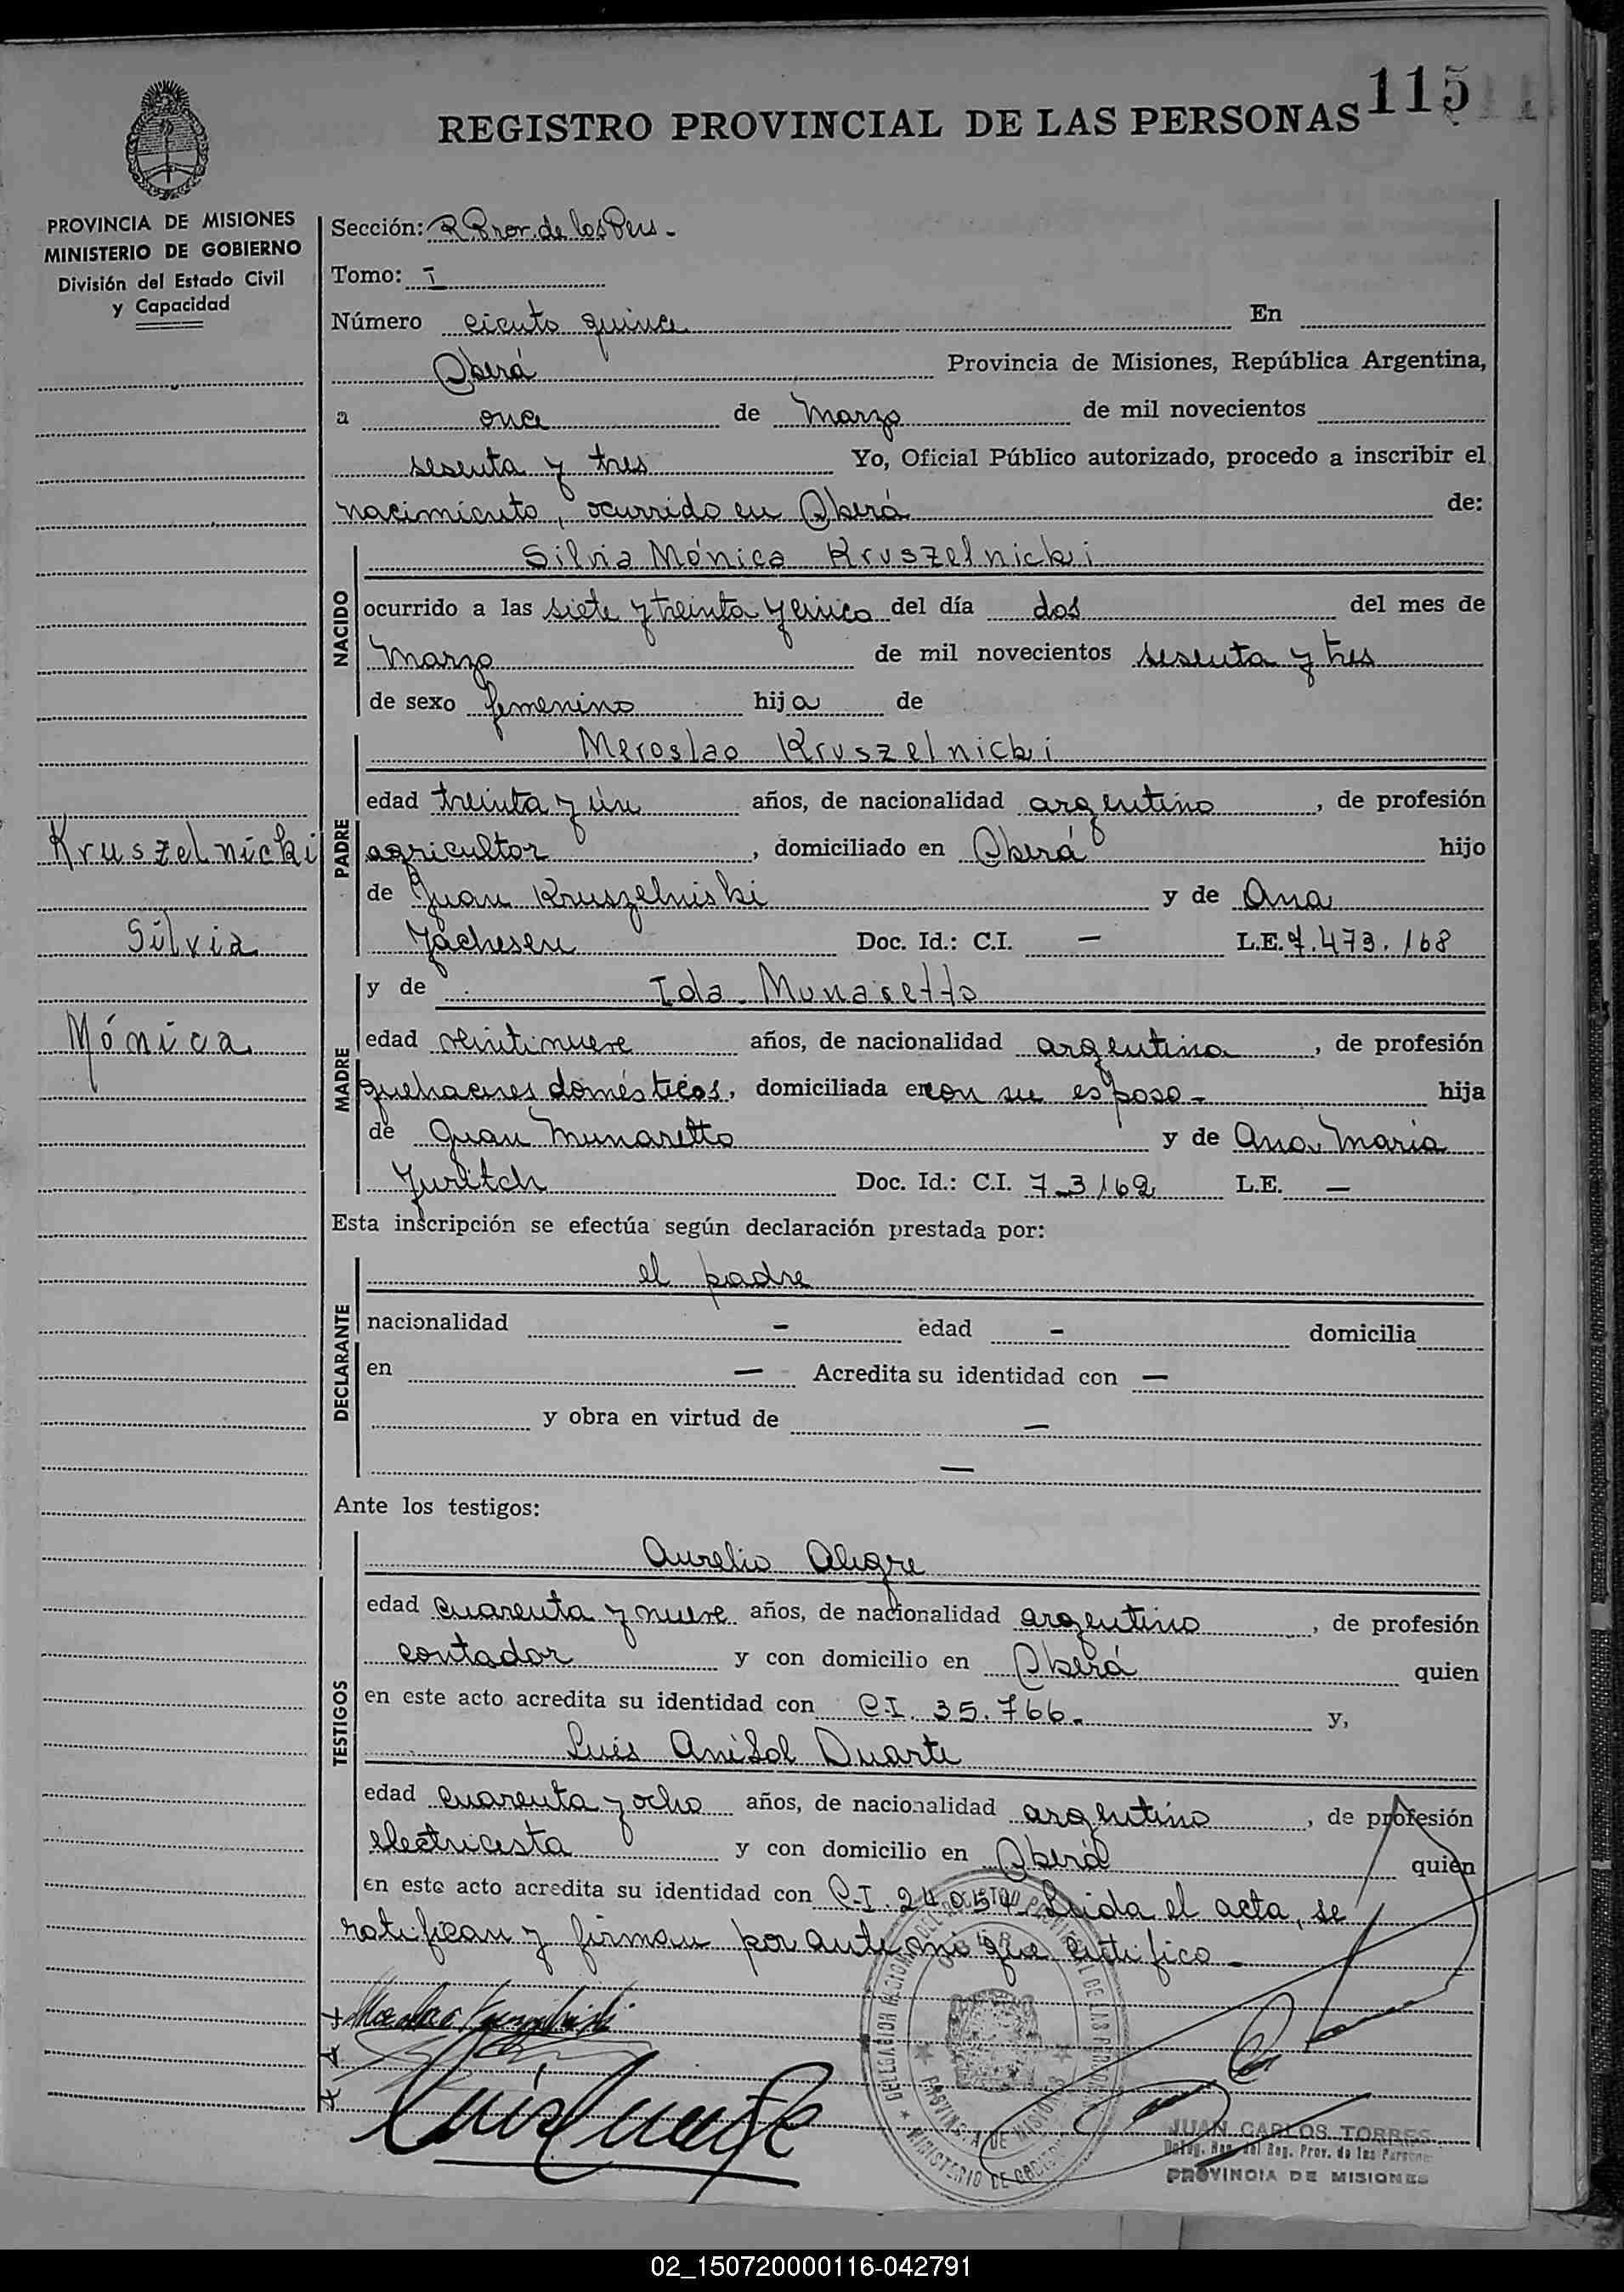 115
REGISTRO PROVINCIAL DE LAS PERSONAS
PROVINCIA DE MISIONES
MINISTERIO DE GOBIERNO
División del Estado Civil
y Capacidad
Kruszelnicki
Silvia
Mónica
Sección: R. Prov. de las Pers -
Tomo: I
Número ciento quince En
Oberá Provincia de Misiones, República Argentina,
a once de Marzo de mil novecientos
sesenta y tres Yo, Oficial Público autorizado, procedo a inscribir el
nacimiento, ocurrido en Oberá de:
NACIDO
Silvia Mónica Kruszelnicki
ocurrido a las siete y treinta y cinco del día dos del mes de
Marzo de mil novecientos sesenta y tres
de sexo femenino hija de
PADRE
Meroslao Kruszelnicki
edad treinta y ún años, de nacionalidad argentino, de profesión
agricultor, domiciliado en Oberá hijo
de Juan Kruszelniski y de Ana
Jachesen Doc. Id.: C.I. — L.E. 7.473.168
MADRE
y de Ida Munaretto
edad veintinueve años, de nacionalidad argentina, de profesión
quehaceres domésticos, domiciliada en con su esposo - hija
de Juan Munaretto y de Ana María
Juritch Doc. Id.: C.I. 73162 L.E. —
Esta inscripción se efectúa según declaración prestada por:
DECLARANTE
el padre
nacionalidad - edad - domicilia
en — Acredita su identidad con —
y obra en virtud de —
—
Ante los testigos:
TESTIGOS
Aurelio Alegre
edad cuarenta y nueve años, de nacionalidad argentino, de profesión
contador y con domicilio en Oberá quien
en este acto acredita su identidad con C.I. 35.766- y,
Luis Duarte
edad cuarenta y ocho años, de nacionalidad argentino, de profesión
electricista y con domicilio en Oberá quien
en este acto acredita su identidad con C.I. 24.057 Leida el acta, se
ratifican y firman por ante mi que certifico -
Luis Duarte
PROVINCIA DE MISIONES
MINISTERIO DE GOBIERNO
JUAN CARLOS TORRES
Deleg. Nac. del Reg. Prov. de las Personas
PROVINCIA DE MISIONES
02_150720000116-042791